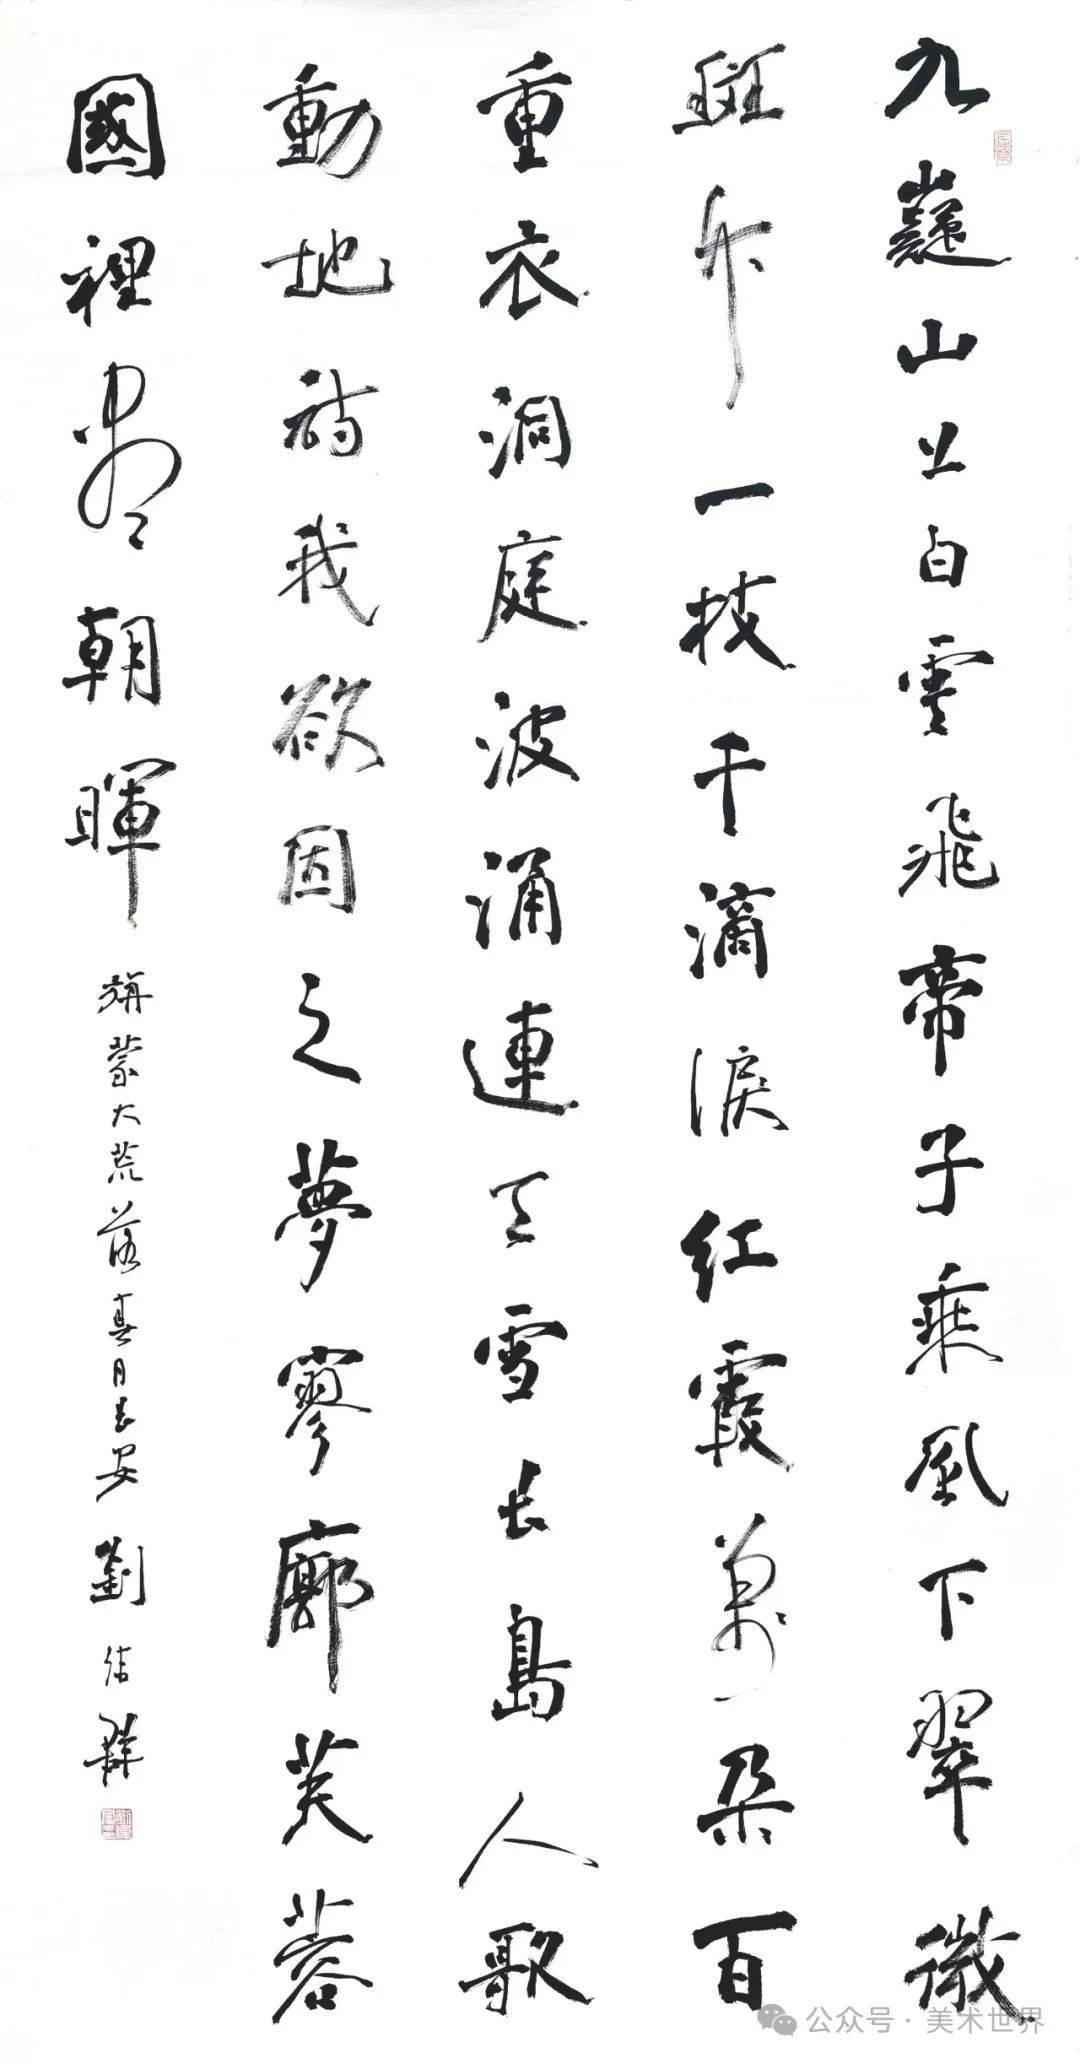 九嶷山上白雲飛帝子乘風下翠微
斑竹一枝千滴淚红霞萬朵百
重衣洞庭波涌連天雪长島人歌
動地詩我欲因之夢寥廓芙蓉
國裡盡朝暉
旃蒙大荒落春月长安 劉 群
公众号 · 美术世界